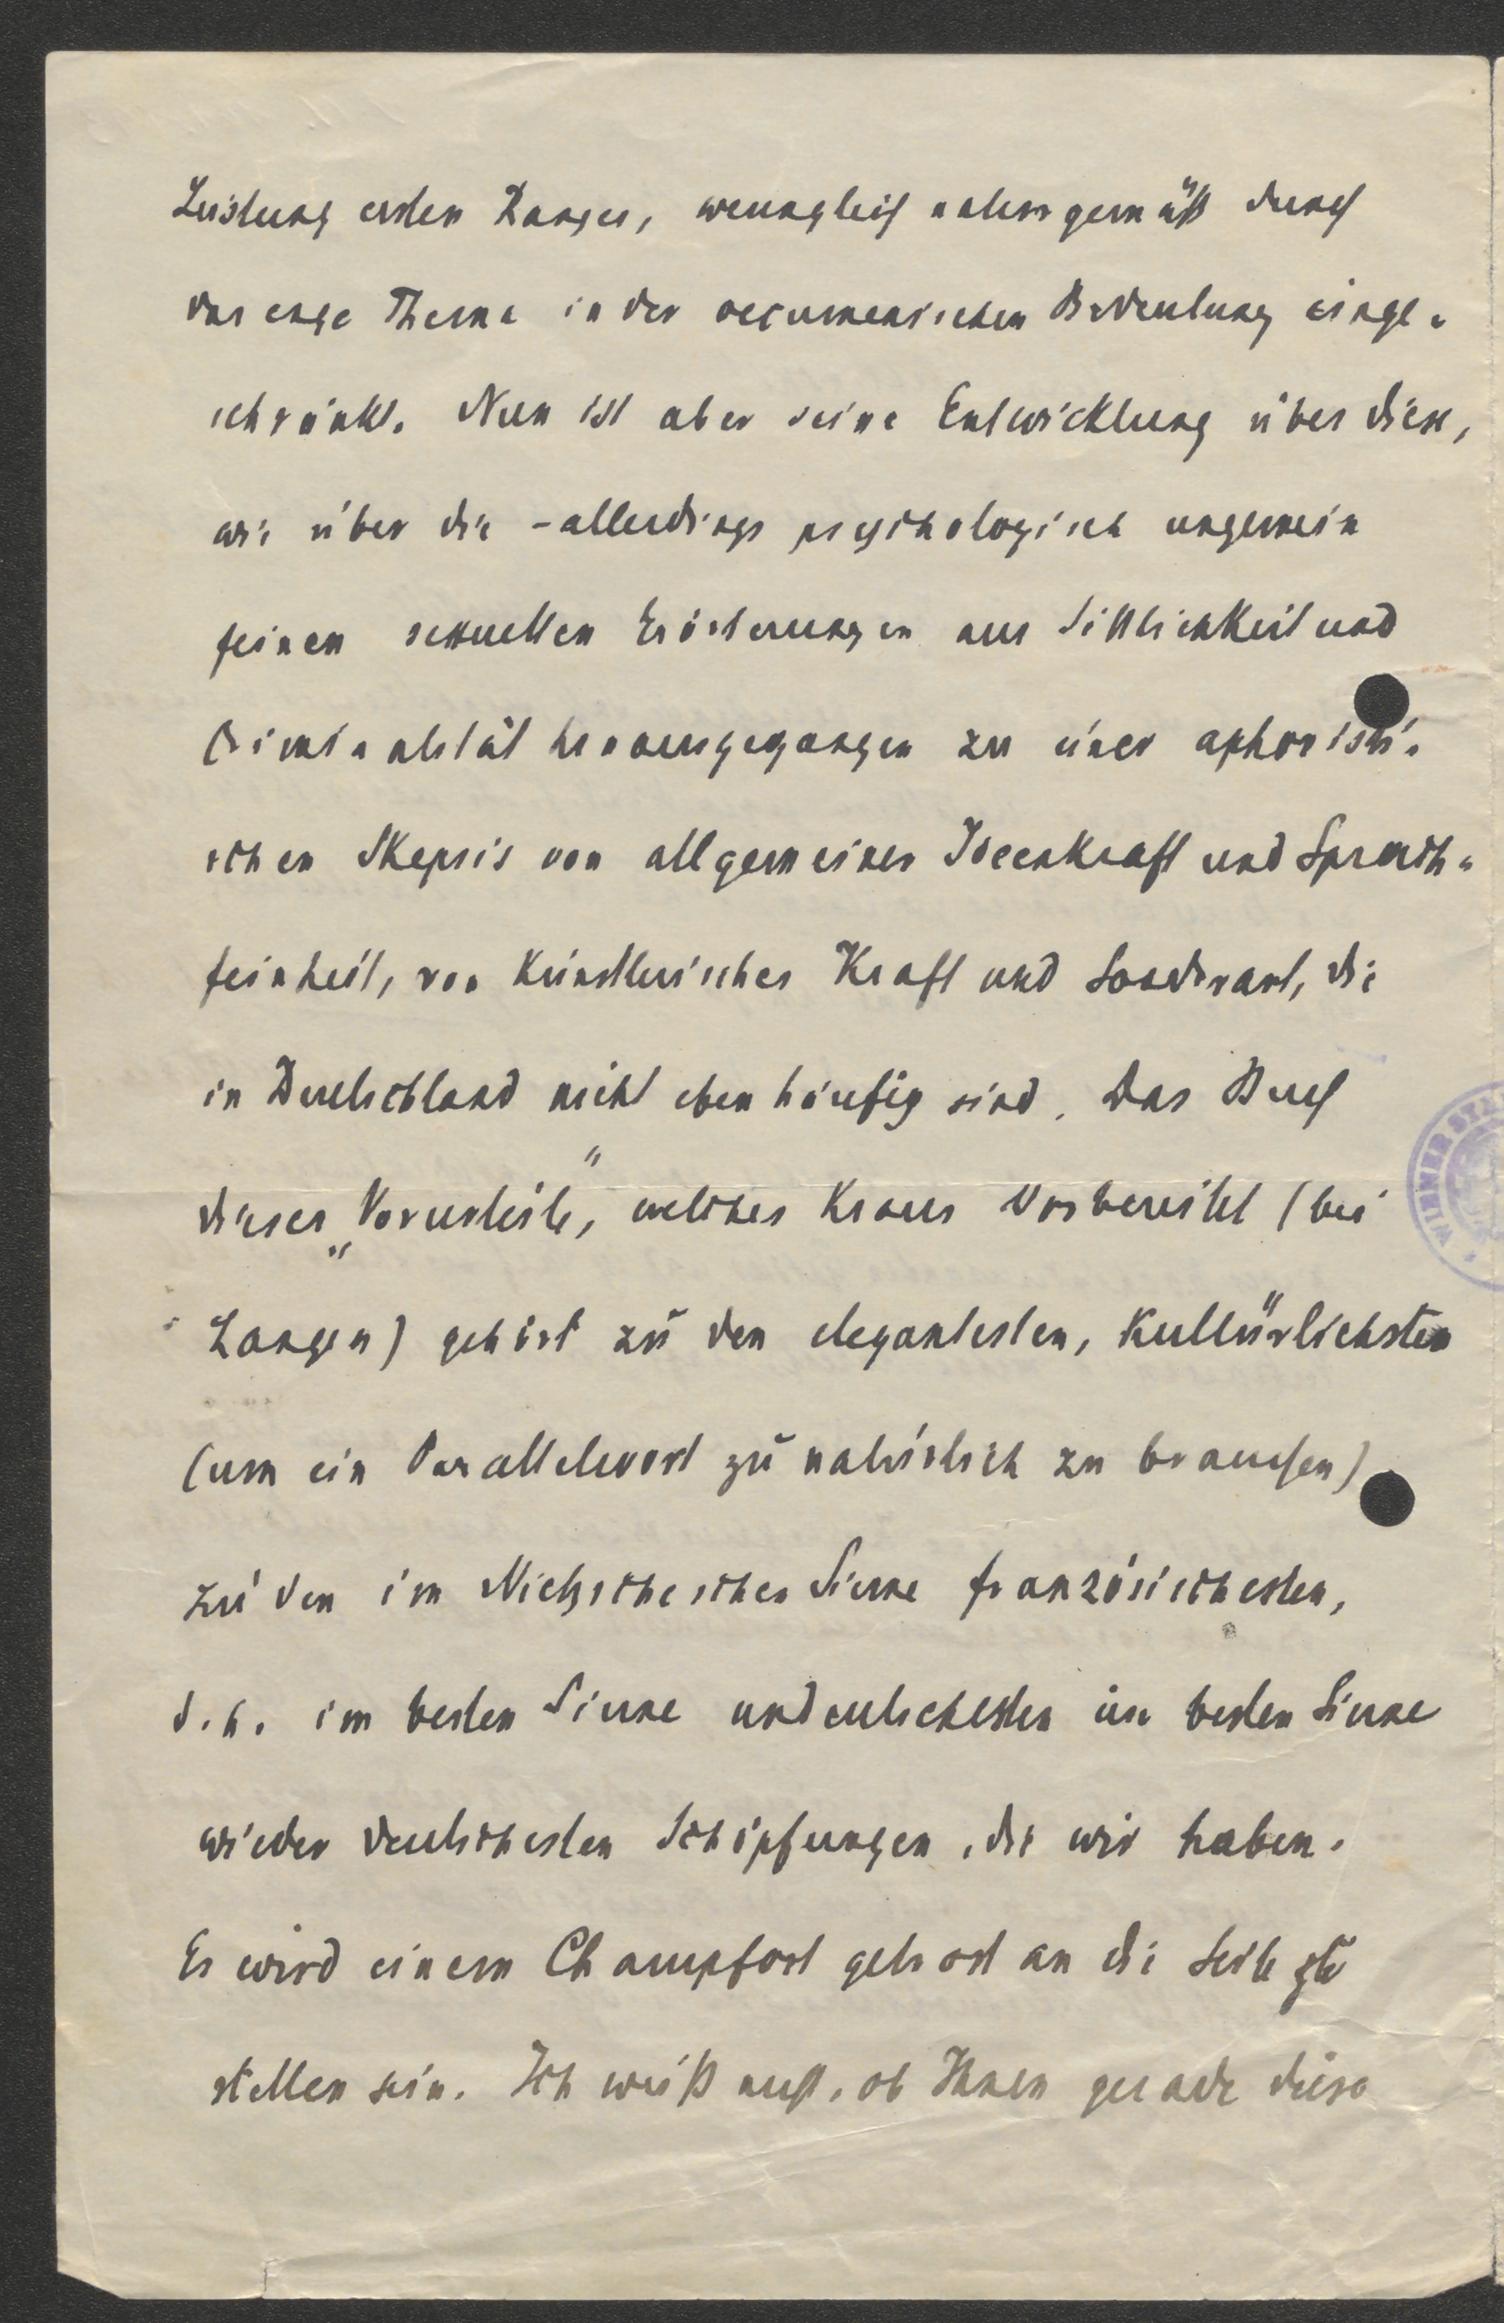 Leistung ersten Ranges, wenngleich naturgemäß durch
das enge Thema in der oecumenischen Bedeutung einge-
schränkt. Nun ist aber seine Entwicklung über diese,
wie über die - allerdings psychologisch ungemein
feinen sexuellen Erörterungen aus Sittlichkeit und
Criminalität hinausgegangen zu einer aphoristi-
schen Skepsis von allgemeiner Ideenkraft und Sprach-
feinheit, von künstlerischer Kraft und Sonderart, die
in Deutschland nicht eben häufig sind. Das Buch
dieser „Vorurteile“, welches Kraus vorbereitet (bei
Langen) gehört zu den elegantesten, kultürlichsten
(um ein Parallelwort zu natürlich zu brauchen)
zu den im Nietzscheschen Sinne französischesten,
d. h. im besten Sinne undeutschesten im besten Sinne
wieder deutschesten Schöpfungen, die wir haben.
Es wird einem Champfort getrost an die Seite zu
stellen sein. Ich weiß nicht, ob Ihnen gerade diese
WIENER